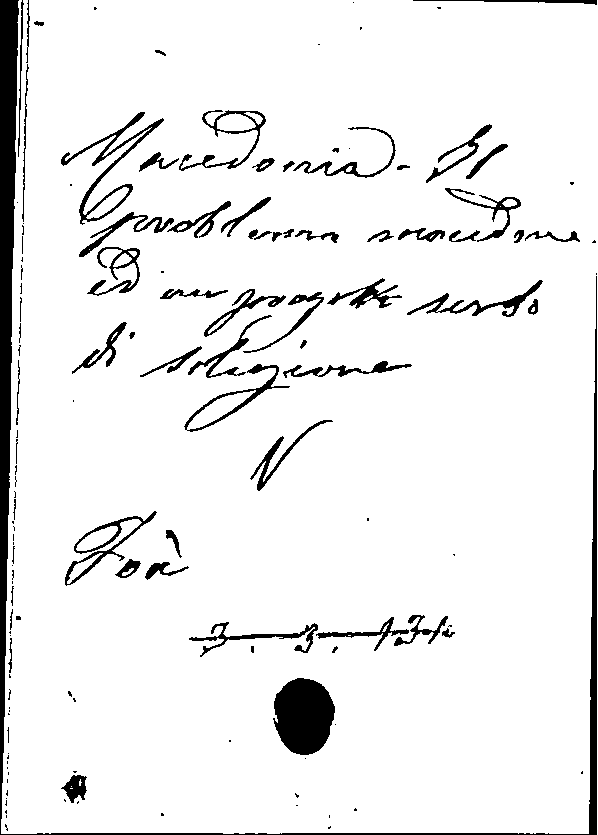 Macedonia - Il
problema macedone
ed un progetto serbo
di soluzione
N
Foà
3. 3.